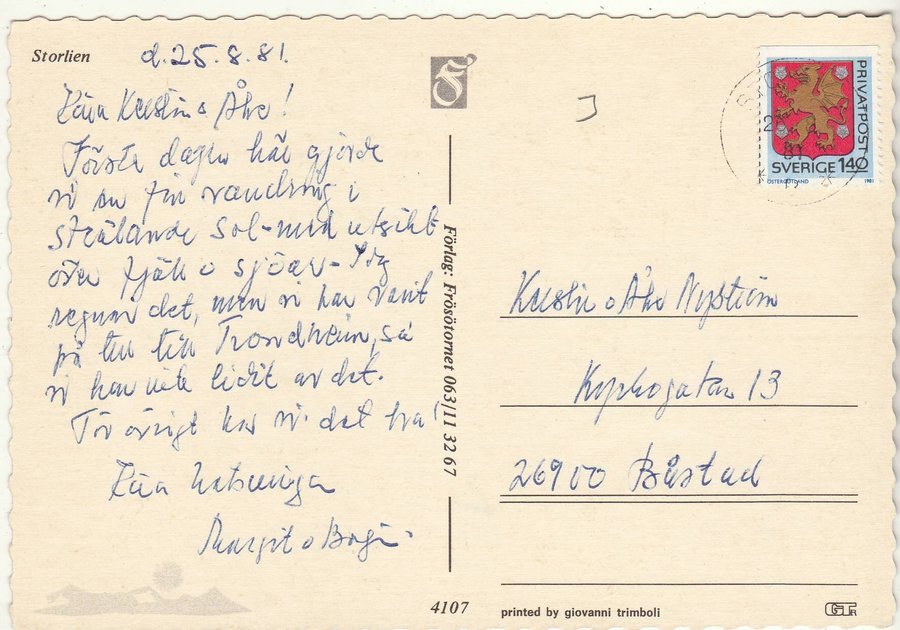 Storlien
d. 25.8.81.
Kära Kerstin o Åke!
Första dagen här gjorde
vi en fin vandring i
strålande sol - med utsikt
över fjäll o sjöar - Idag
regnar det, men vi har varit
på tur till Trondheim, så
vi har inte lidit av det.
För övrigt har vi det bra!
Kära hälsningar
Margit o
Förlag: Frösötornet 063/11 32 67
4107
PRIVATPOST
SVERIGE 1.40
ÖSTERGÖTLAND 1981
Kerstin o Åke Nyström
13
26900 Båstad
printed by giovanni trimboli